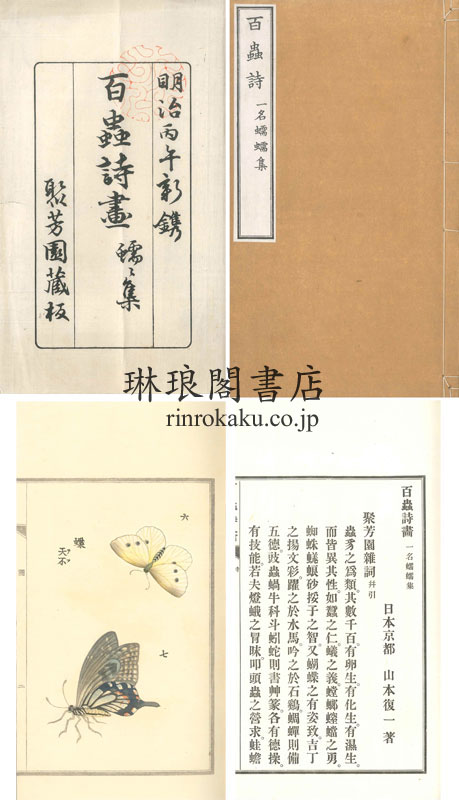 明治丙午新鐫
百蟲詩畫 蠕〻集
聚芳園藏板
百蟲詩 一名蠕蠕集
琳琅閣書店
rinrokaku.co.jp
六
蝶
七
百蟲詩畫 一名蠕蠕集
日本京都 山本復一著
聚芳園雜詞 幷引
蟲豸之爲類。其數千百。有卵生。有化生。有濕生。
而皆異其性。如蠶之仁。蟻之義。螳螂之勇。
蜘蛛蠛蠓砂挼子之智。又蝴蝶之有姿致。吉丁
之揚文彩。躍之於水馬。吟之於石鷄。蜩蟬則備
五德。豉蟲蝸牛科斗蚓蛇則書草篆。各有德操。
有技能。若夫燈蛾之冒昧。叩頭蟲之營求。蛙蟾